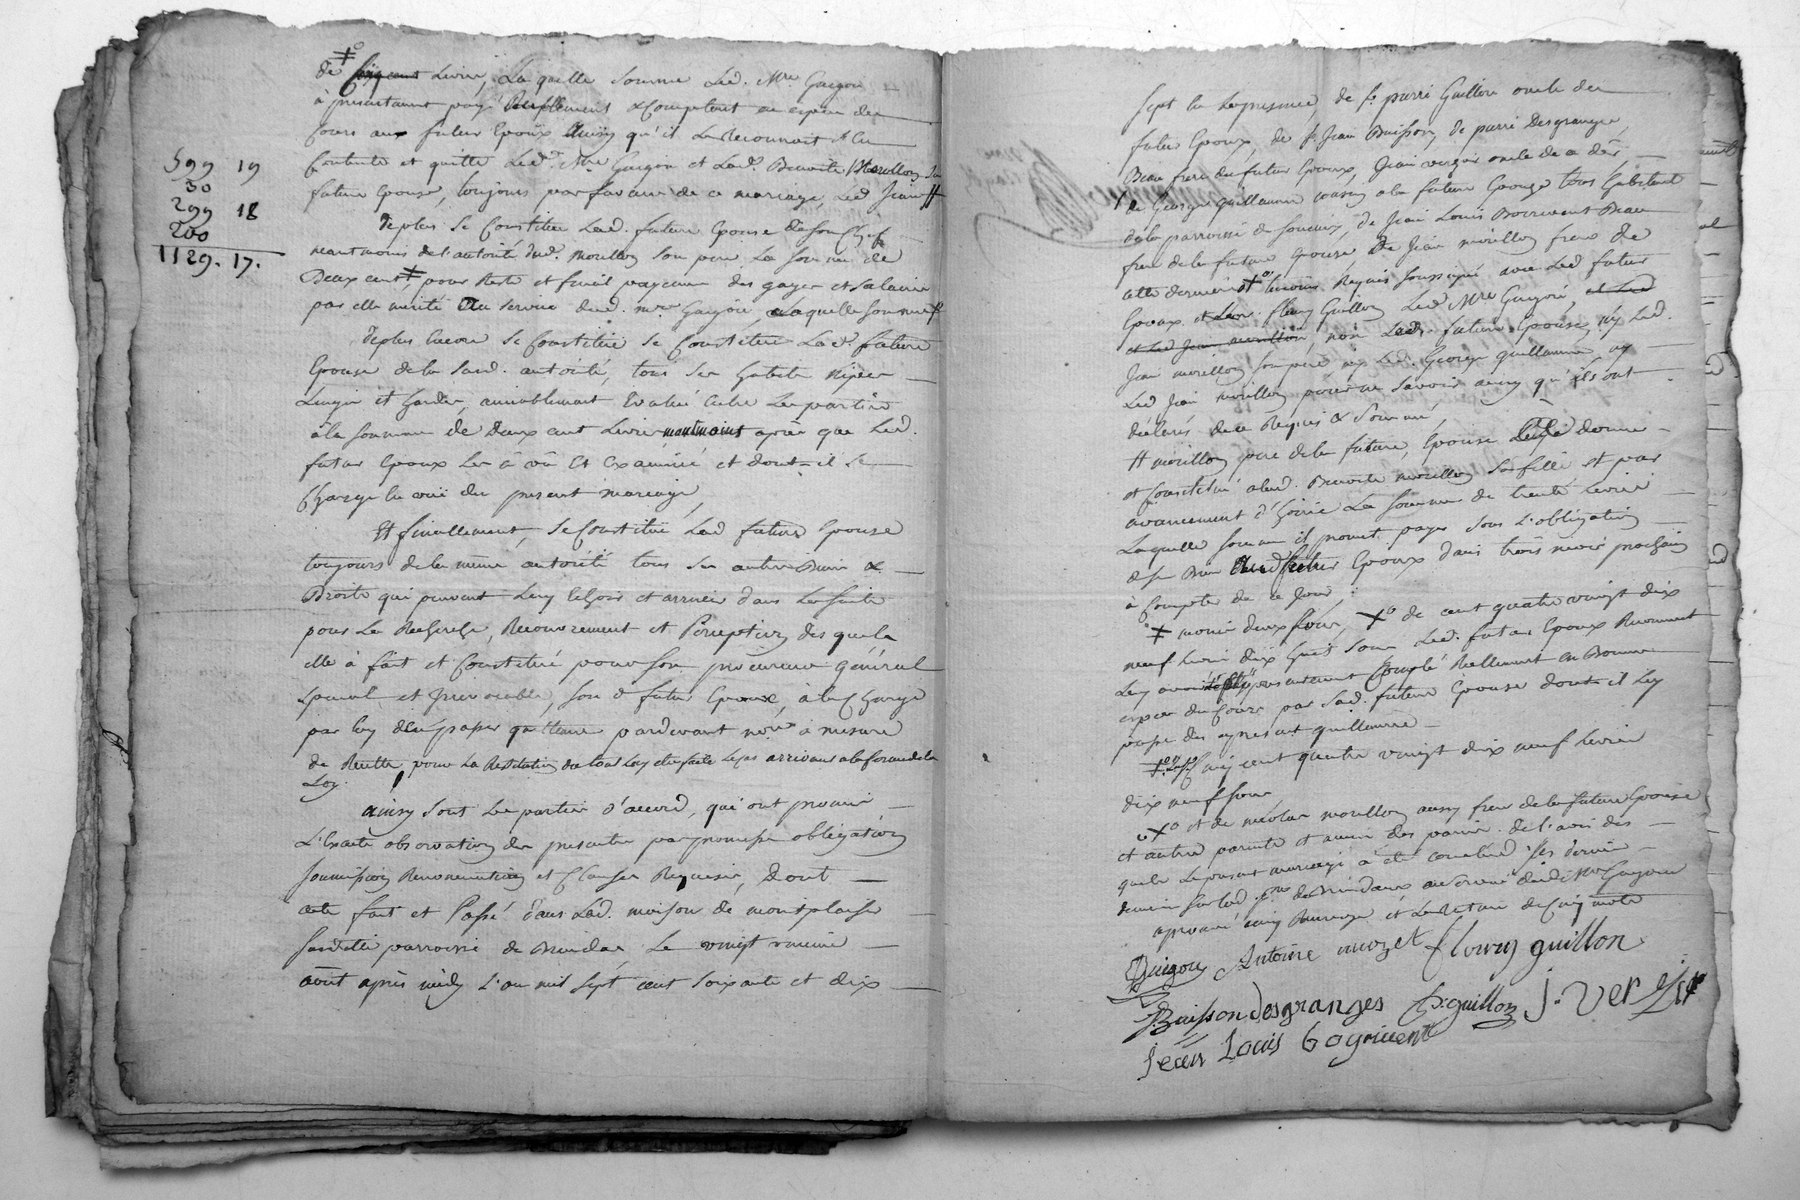 599 19
30
299 18
200
1129. 17.
de cinq cent Livres, La quelle Somme Led. Mre Guigou
à presentement payé Reellement & Comptant en espece de
Cours aux futur Epoux Ainsy qu'il Le Reconnoit & la
Contente et quitte Led. Mre Guigou et Lad. Benoite Morillon Sa
future Epouse, toujours par faveur de ce mariage, Led Jean #
Deplus Se Constitue Lad. future Epouse de Son Chef
neantmoins de l'autorité dud. Morillon Son pere La Somme de
Deux cent ‡ pour Reste et finál payement des gages et Salaires
par elle merité Au Service dud. mre Guigou, Laquelle Somme
Deplus Encore Se Constitue Se Constitue Lad. future
Epouse de la Susd. autorité, tous Ses habits Nipes
Linges et hardes, amiablement Evalué Entre Les parties
à la Somme de Deux cent Livres neantmoins après que Led.
futur Epoux Les à vû Et Examiné et dont il Se
Charge En vuë du present mariage,
Et finallement, Se Constitue Lad future Epouse
toujours de la même autorité tous Ses autres Biens &
Droits qui peuvent Luy Echoir et arriver dans La Suite
pour La Recherche, Recouvrement et Perception des quels
elle à fait et Constitué pour Son procureur général
Special et Irrevocable, Son d futur Epoux, à la Charge
par luy d'En passer quittance pardevant nore à mesure
de Recette pour La Restitution du tout Luy etre faite Le cas arrivant a la forme de la
Loy.
Ainsy Sont Les parties d'accord, qui ont promis
L'Exacte observation des presentes par promesse obligation
Soumission Renonciation et Clauses Requises, Dont
acte fait et Passé dans Lad. maison de montplaisir
Susditte parroisse de Brindas Le vingt uneme
août après midy L'an mil Sept cent Soixante et dix
Sept En Lapresence, de Sr pierre Guillon oncle du
futur Epoux, de Sr Jean Buisson, de pierre Desgranges
Beau frere du futur Epoux, Jean verzier oncle de a dés,
de George Guillaume cousin a la future Epouse tous habitant
dela parroisse de Soucieu, de Jean Louis Bonnivent Beau
frere de la future Epouse de Jean morillon frere de
cette derniere temoins Requis Soussigné avec Led futur
Epoux, et Sieur fleury Guillon Led Mre Guigou, et Led
et Led Jean morillon, non Lad. future Epouse, ny Led.
Jean morillon Son pere ny Led. George guillaume, ny
Led Jean morillon pour ne Savoir ainsy qu'ils ont
déclarés de ce Requis & Sommé,
# morillon pere de la future, Epouse donne
et Constitue alad. Benoite morillon Sa fille et par
avancement d'hoirie La Somme de trente Livres
Laquelle Somme il promet payer Sous L'obligation
de Ses Biens Aud futur Epoux dans trois mois prochain
à Compter de ce Jour,
‡ moins deux Sous, X de cent quatre vingt dix
neuf Livres dix huit Sous Led. futur Epoux Reconnoit
Luy avoir été presentement Compté Reellement en Bonne
espece de Cours par Sad. future Epouse dont il Luy
passe des apresent quittance
Cinq cent quatre vingt dix neuf Livres
dix neuf Sous
X et de nicolas morillon aussy frere de la future Epouse
et autres parents et amis des parties de l'avis des
quels Le present mariage à été conclud
aprouvé ainsy Renvoye et La Rature de Cinq mots
Guigou Antoine mozet fleury guillon
Buisson desgranges p. guillon j. verzier
jean Louis bonnivent